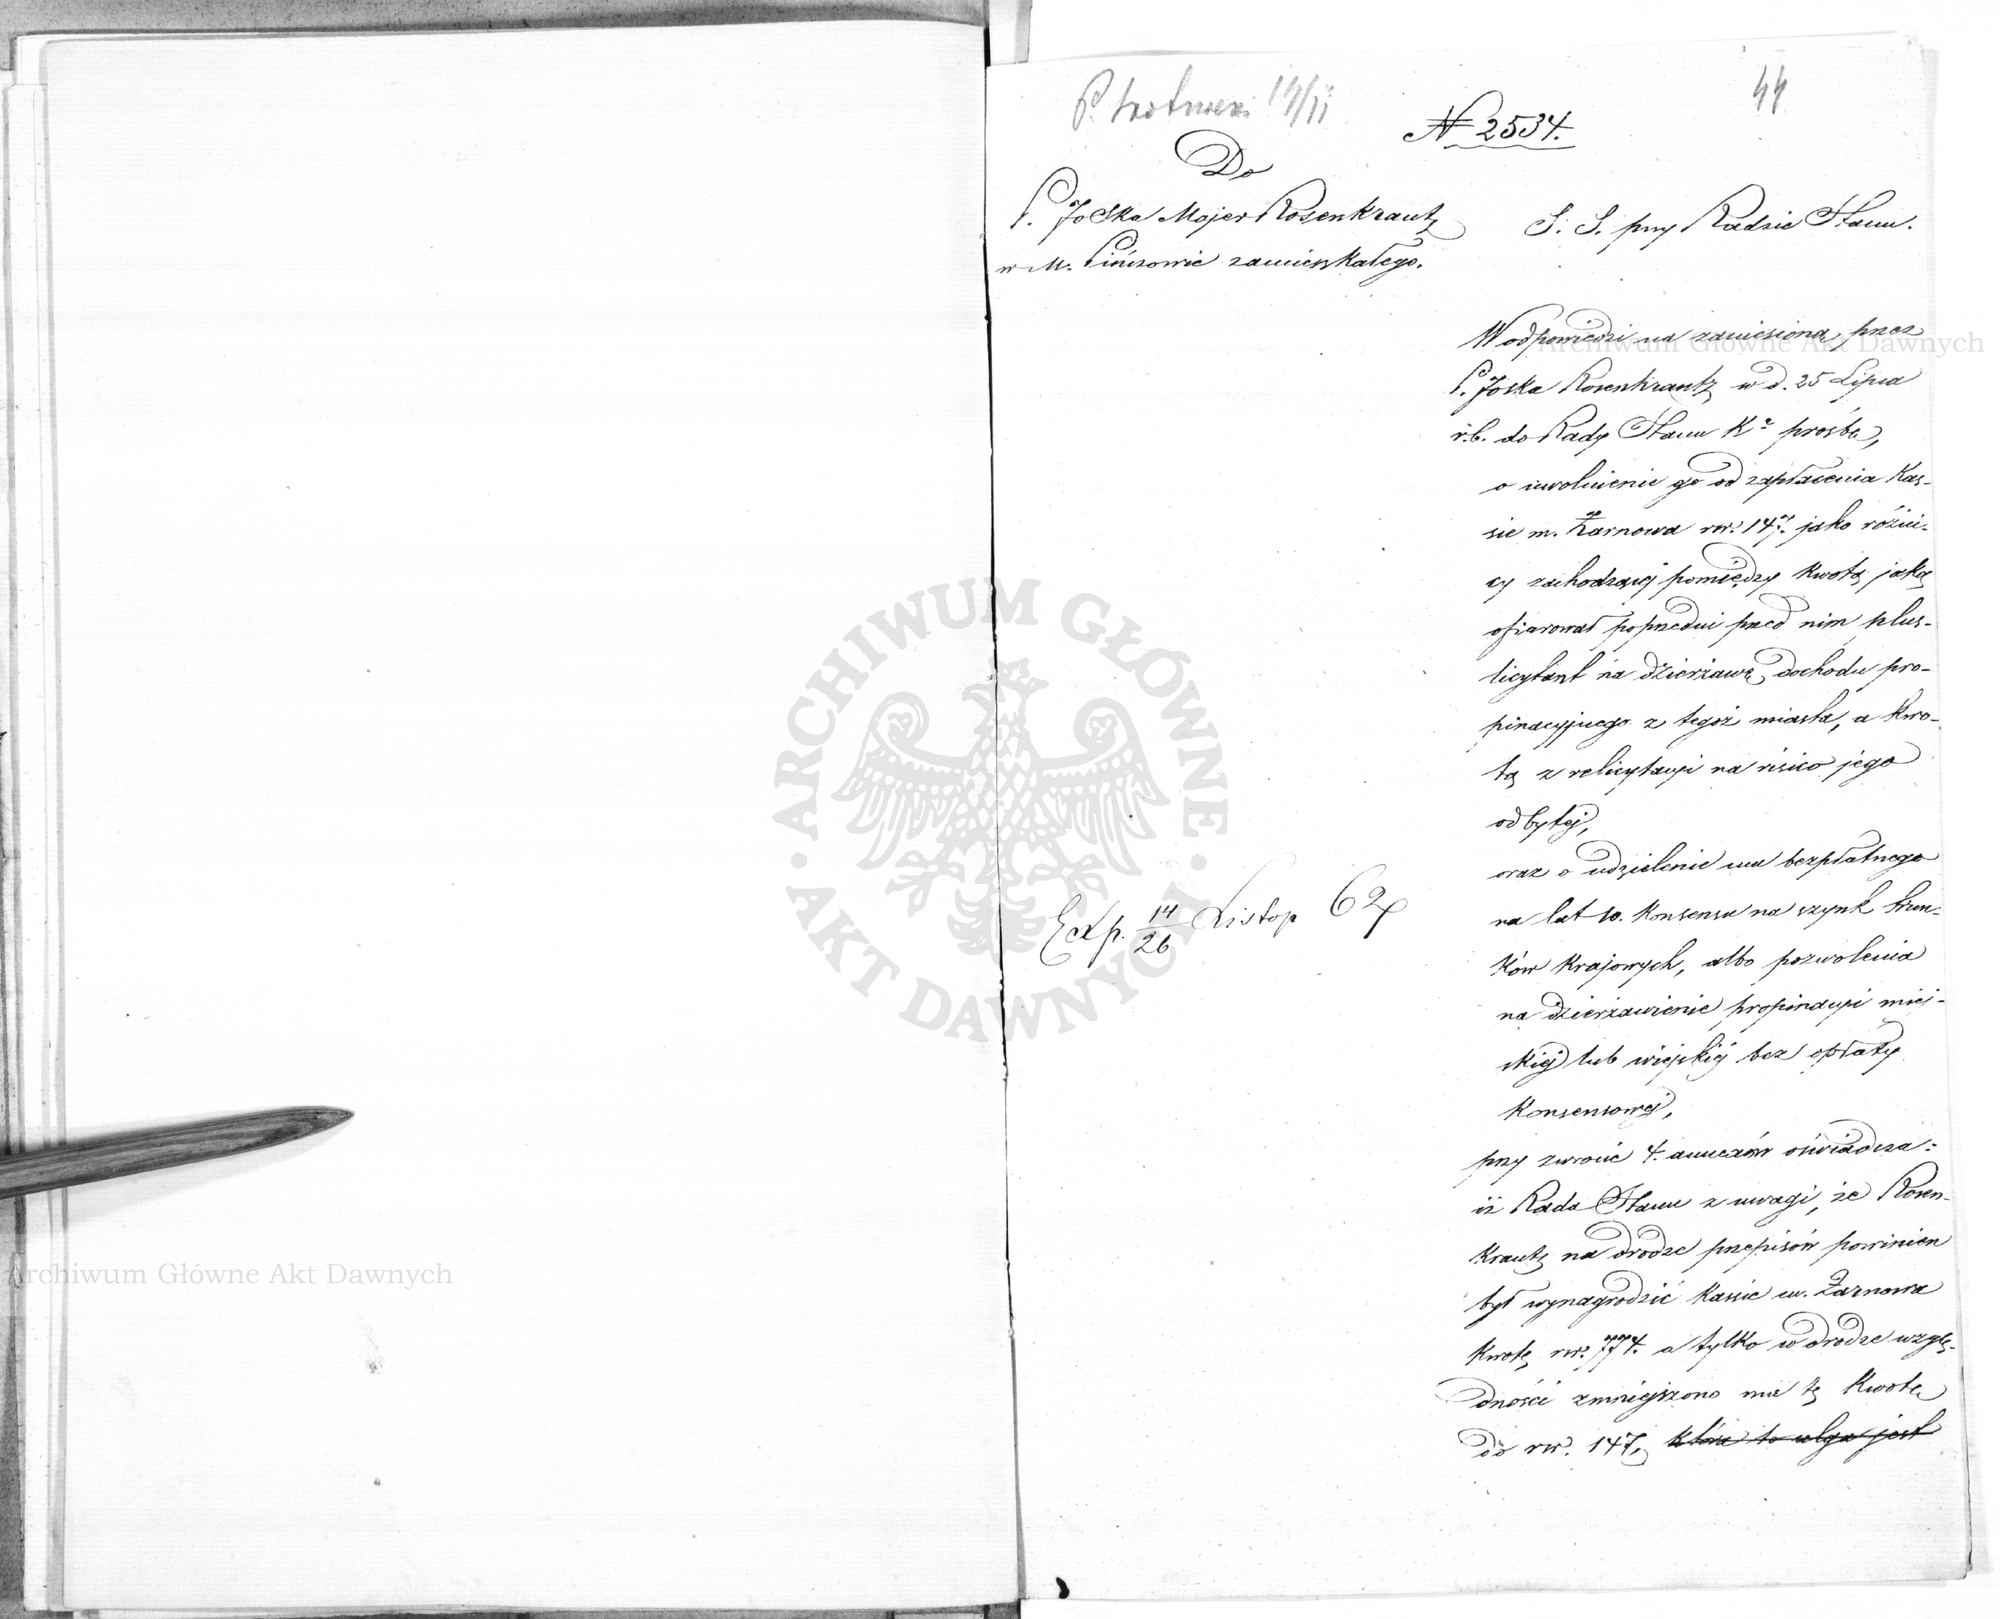 44
14/11
N 2534.
Do
P. Joska Majer Rosenkrantz
w M. Pińczowie zamieszkałego.
S. S. przy Radzie Stanu.
W odpowiedzi na zaniesioną przez
P. Joska Rosenkrantz w d. 25 Lipca
r.b. do Rady Stanu Kr prośbę,
o uwolnienie go od zapłacenia Kas-
sie m. Żarnowa rsr. 147. jako różni-
cy zachodzącej pomiędzy kwotą jaką
ofiarował poprzedni przed nim plus-
licytant na dzierżawę dochodu pro-
pinacyjnego z tegoż miasta, a kwo-
tą z relicytacyi na risico jego
odbytej,
oraz o udzielenie mu bezpłatnego
na lat 10. Konsensu na szynk trun-
ków krajowych, albo pozwolenia
na dzierżawienie propinacyi miej-
skiej lub wiejskiej bez opłaty
Konsensowej,
przy zwrocie 4. annexów oświadcza:
iż Rada Stanu z uwagi, że Rosen-
krantz na drodze przepisów powinien
był wynagrodzić Kassie m. Żarnowa
kwotę rsr. 774. a tylko w drodze wzglę-
dności zmniejszono mu tę kwotę
do rsr. 147, która to ulga jest
Exp. 14/26 Listop 62
ARCHIWUM GŁÓWNE AKT DAWNYCH
Archiwum Główne Akt Dawnych
Archiwum Główne Akt Dawnych